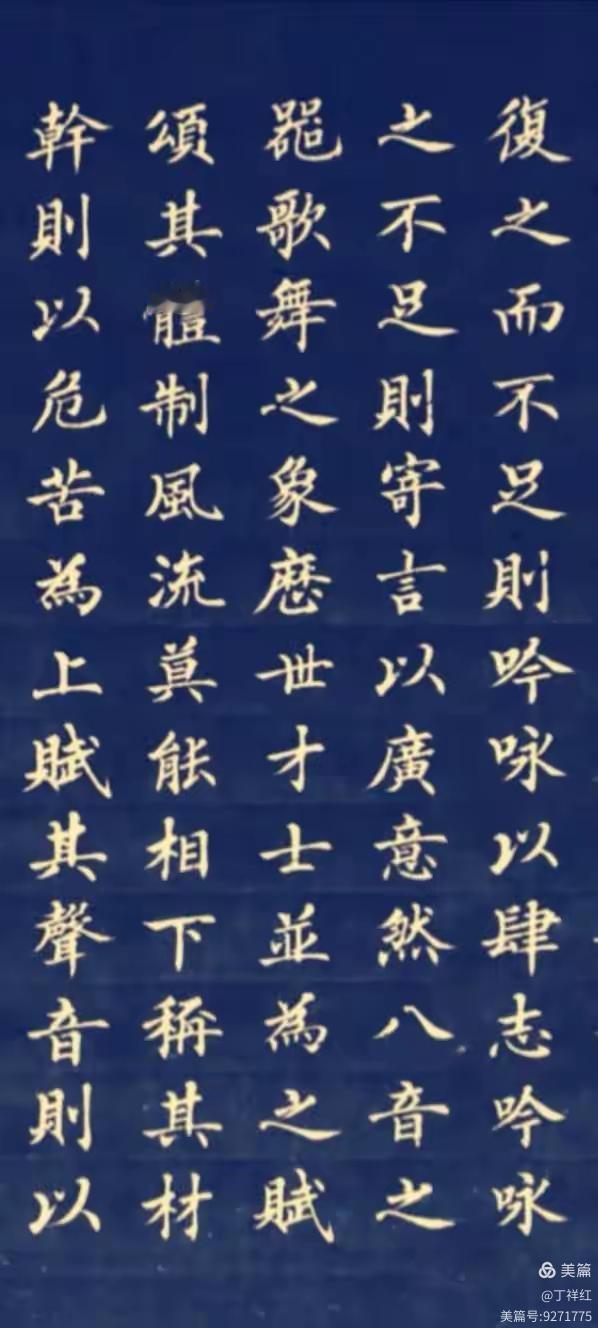 復之而不足則吟咏以肆志吟咏
之不足則寄言以廣意然八音之
噐歌舞之象歷世才士並為之賦
頌其體制風流莫能相下稱其材
幹則以危苦為上賦其聲音則以
美篇
@丁祥红
美篇号:9271775